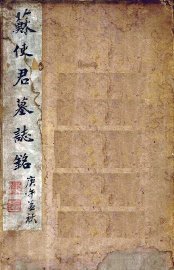 蘇使君墓誌銘
庚午孟秋